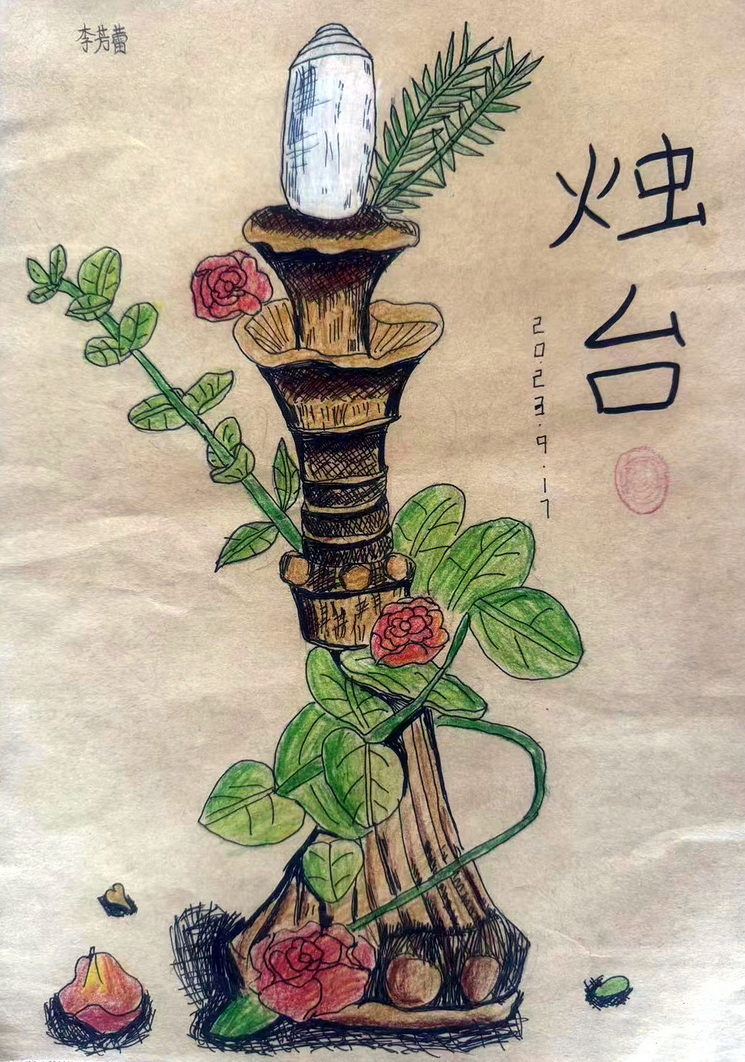 李芳蕾
烛台
2023.9.17